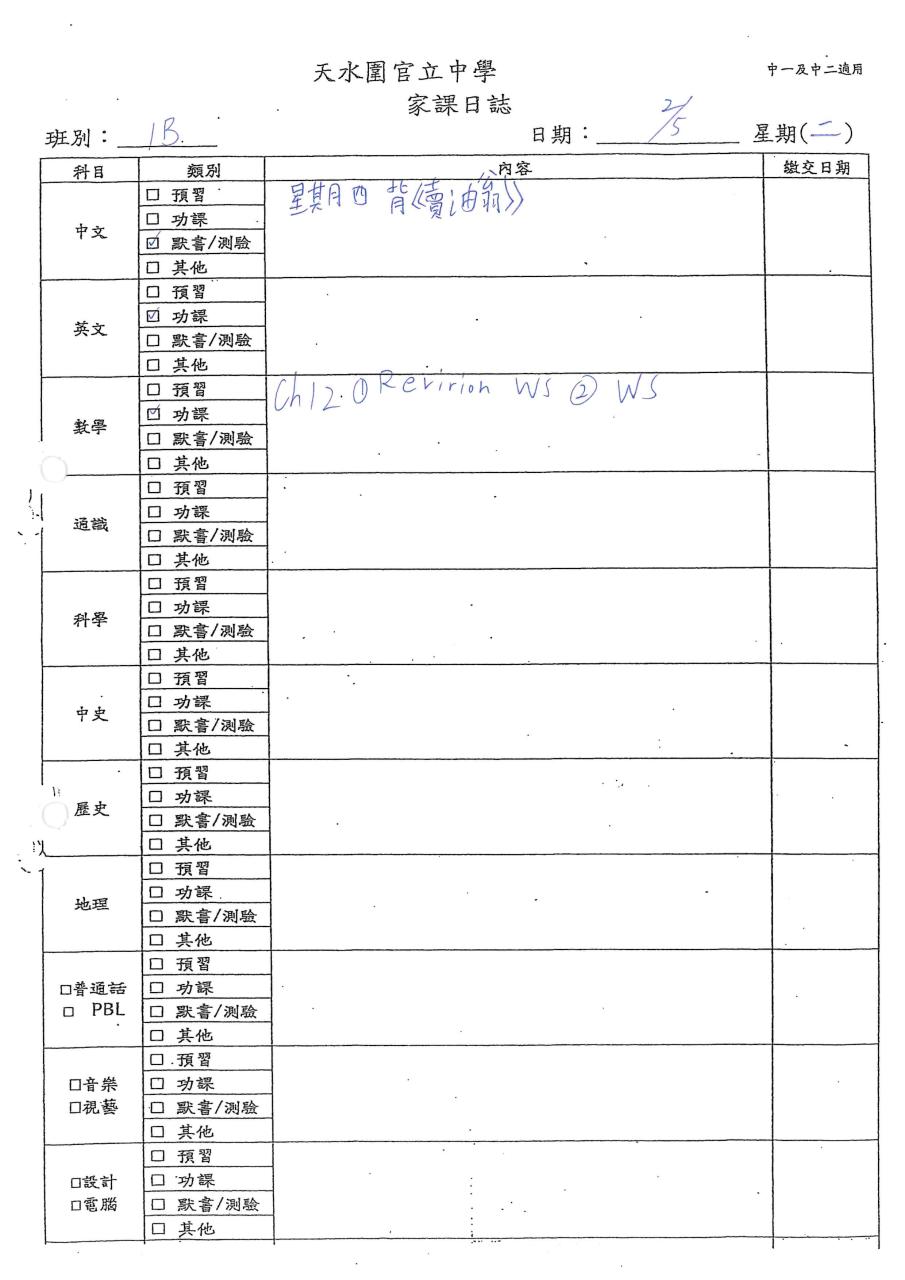 天水圍官立中學
中一及中二適用
家課日誌
班別：1B.
日期：2/5
星期(二)
科目 類別 內容 繳交日期
中文
☐ 預習
☐ 功課
☑ 默書/測驗
☐ 其他
星期四 背《賣油翁》
英文
☐ 預習
☑ 功課
☐ 默書/測驗
☐ 其他
數學
☐ 預習
☑ 功課
☐ 默書/測驗
☐ 其他
Ch12. ① Revirion WS ② WS
通識
☐ 預習
☐ 功課
☐ 默書/測驗
☐ 其他
科學
☐ 預習
☐ 功課
☐ 默書/測驗
☐ 其他
中史
☐ 預習
☐ 功課
☐ 默書/測驗
☐ 其他
歷史
☐ 預習
☐ 功課
☐ 默書/測驗
☐ 其他
地理
☐ 預習
☐ 功課
☐ 默書/測驗
☐ 其他
☐普通話
☐ PBL
☐ 預習
☐ 功課
☐ 默書/測驗
☐ 其他
☐音樂
☐視藝
☐ 預習
☐ 功課
☐ 默書/測驗
☐ 其他
☐設計
☐電腦
☐ 預習
☐ 功課
☐ 默書/測驗
☐ 其他